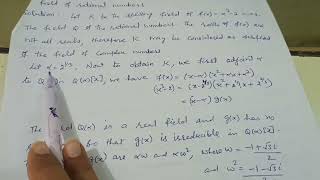 field of rational numbers
Solution. Let K be the splitting field of f(x) = x³-2
The field Q of rational numbers. The roots of f(x) are
not all reals, therefore K may be considered as
of the field of complex numbers
Let α = 2^{1/3}. Now to obtain K, we first adjoin α
to Q. In Q(α)[x], we have f(x) = (x-α)(x²+αx+α²)
(x³-2) = (x-2^{1/3})(x²+2^{1/3}x+2^{2/3})
= (x-α) g(x)
Q(α) is a real field and g(x) has no
so that g(x) is irreducible in Q(α)[x].
g(x) are αω and αω², where ω = -1+√3i/2
and ω² = -1-√3i/2